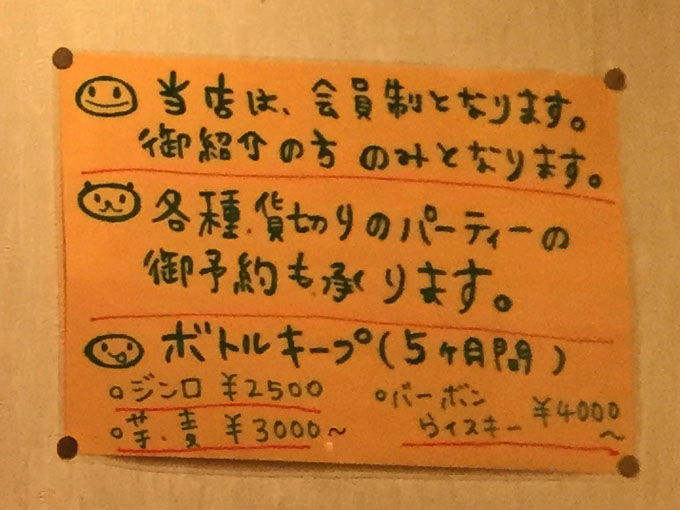 当店は、会員制となります。
御紹介の方のみとなります。
各種.貸切りのパーティーの
御予約も承ります。
ボトルキープ(5ヶ月間)
○ジンロ ¥2500
○芋.麦 ¥3000~
○バーボン
ウイスキー ¥4000
~